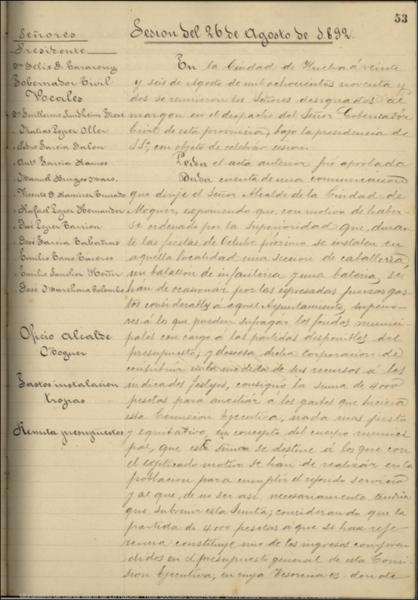 53
Sesion del 26 de Agosto de 1892
Señores
Presidente
Dn Felix G.
Gobernador Civil
Vocales
Dn Guillermo Sundheim
" Matias Lopez Oller
" Pedro Garcia
" Antº Garcia Ramos
" Manuel Burgos
" Vicente D. Ramirez
" Rafael Lopez Hernandez
" José Lopez
" José Garcia Cabañas
" Emilio Cano Caceres
" Emilio Sanchez
" José J. Marchena Colombo
Oficio Alcalde
Moguer
Gastos instalacion
tropas
Remita presupuestos
En la Ciudad de Huelva á veinte
y seis de Agosto de mil ochocientos noventa y
dos se reunieron los Señores designados al
margen en el despacho del Señor Gobernador
Civil de esta provincia, bajo la presidencia de
S.Sª, con objeto de celebrar sesion.
Leida el acta anterior fué aprobada
Dada cuenta de una comunicacion
que dirije el Señor Alcalde de la Ciudad de
Moguer, exponiendo que, con motivo de haber-
se ordenado por la superioridad que, duran-
te las fiestas de Octubre proximo se instalen en
aquella localidad una seccion de caballeria,
un batallon de infanteria y una bateria, se
han de ocasionar por las expresadas fuerzas gas-
tos considerables á aquel Ayuntamiento, superio-
res á lo que pueden sufragar los fondos munici-
pales con cargo á las partidas disponibles del
presupuesto; y deseosa dicha corporacion de
contribuir en la medida de sus recursos á los
indicados festejos, consignó la suma de 4000
pesetas para auxiliar á los gastos que hiciera
esta Comision Ejecutiva, nada mas justo
y equitativo, en concepto del cuerpo munici-
pal, que esta suma se destine á los que con
el explicado motivo se han de realizar en la
poblacion para cumplir el referido servicio
y al que, de no ser asi, necesariamente tendria
que subvenir esta Junta; considerando que la
partida de 4000 pesetas á que se hace refe-
rencia constituye uno de los ingresos compren-
didos en el presupuesto general de esta Comi-
sion Ejecutiva, en cuya Tesoreria es donde